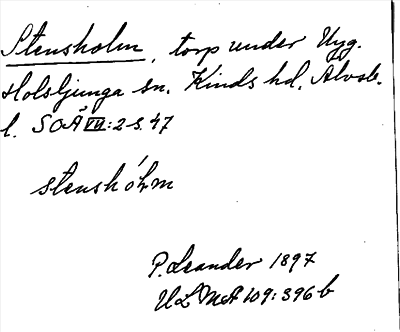 Stensholm, torp under Nyg.
Holsljunga sn. Kinds hd. Älvsb.
l. SOÄ VII:2 s. 47
stenshólm
P. Leander 1897
ULMA 109:396 b